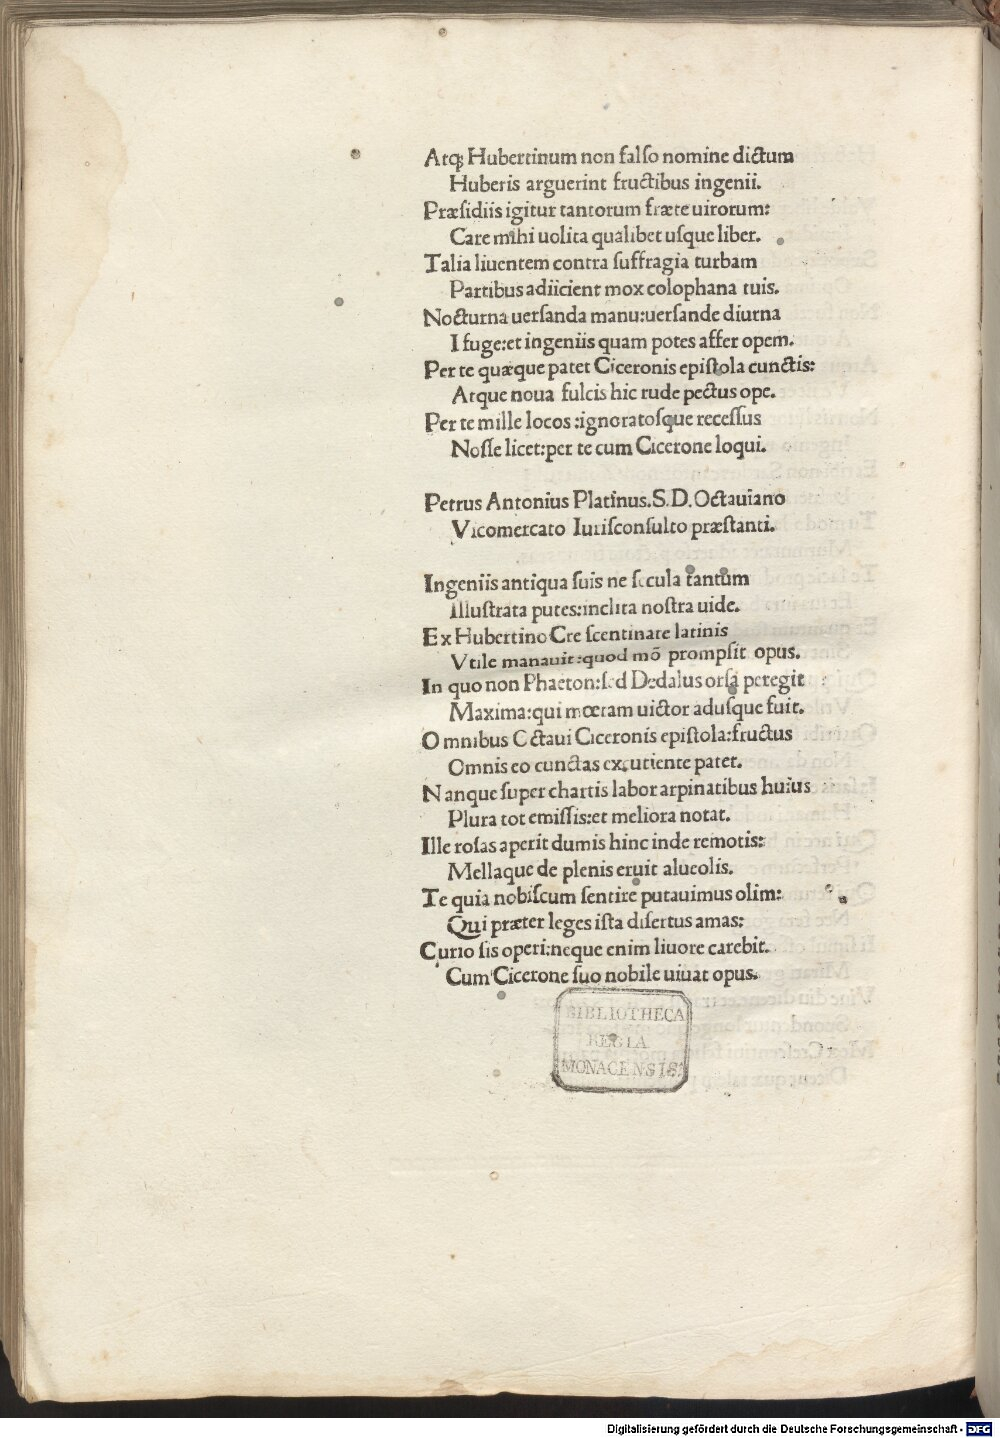 Atqꝫ Hubertinum non falso nomine dictum
Huberis arguerint fructibus ingenii.
Præsidiis igitur tantorum fræte uirorum:
Care mihi uolita qualibet usque liber.
Talia liuentem contra suffragia turbam
Partibus adiicient mox colophana tuis.
Nocturna uersanda manu:uersande diurna
I fuge:et ingeniis quam potes affer opem.
Per te quæque patet Ciceronis epistola cunctis:
Atque noua fulcis hic rude pectus ope.
Per te mille locos:ignoratosque recessus
Nosse licet:per te cum Cicerone loqui.
Petrus Antonius Platinus.S.D.Octauiano
Vicomercato Iurisconsulto præstanti.
Ingeniis antiqua suis ne secula tantum
Illustrata putes:inclita nostra uide.
Ex Hubertino Crescentinate latinis
Vtile manauit:quod mõ prompsit opus.
In quo non Phaeton:sed Dedalus orsa peregit
Maxima:qui mœtam uictor adusque fuit.
Omnibus Octaui Ciceronis epistola:fructus
Omnis eo cunctas excutiente patet.
Nanque super chartis labor arpinatibus huius
Plura tot emissis:et meliora notat.
Ille rosas aperit dumis hinc inde remotis:
Mellaque de plenis eruit alueolis.
Te quia nobiscum sentire putauimus olim:
Qui præter leges ista disertus amas:
Curio sis operi:neque enim liuore carebit.
Cum Cicerone suo nobile uiuat opus.
BIBLIOTHECA
REGIA
MONACENSIS.
Digitalisierung gefördert durch die Deutsche Forschungsgemeinschaft - DFG